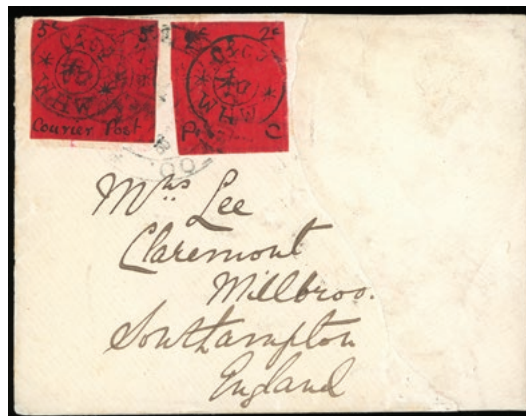 5c
2c
Courier Post
P C
Mrs Lee
Claremont
Millbroo.
Southampton
England